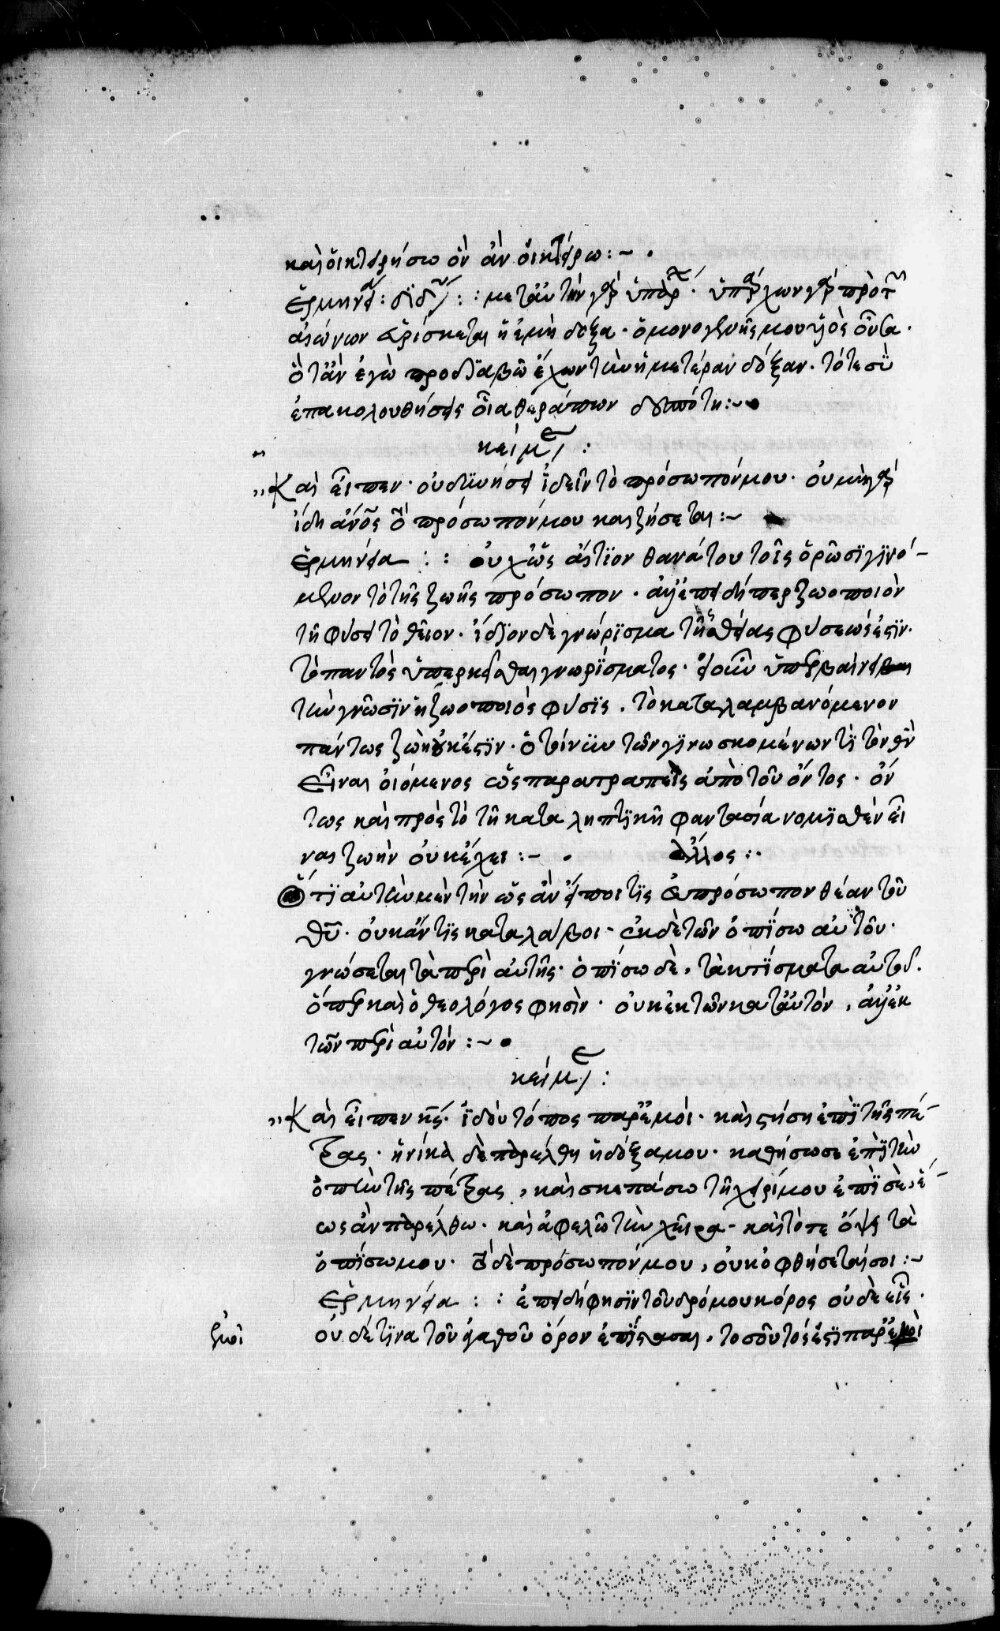 καὶ οἰκτειρήσω ὃν ἂν οἰκτείρω :~ .
μετ' αὐτὴν γὰρ ὑπάρχων γὰρ πρὸ τ
αἰώνων εὑρίσκεται ἡ ἐμὴ δόξα · ὁ μονογενής μου υἱὸς
ὅταν ἐγὼ προδιαβῶ ἔχων τὴν ἡμετέραν δόξαν · τότε σὺ
ἐπακολουθήσεις οἷα θεράπων δεσπότη :~
κείμε :
,, Καὶ εἶπεν · οὐ δυνήση ἰδεῖν τὸ πρόσωπόν μου · οὐ μὴ γὰρ
ἴδη ἄνος τὸ πρόσωπόν μου καὶ ζήσεται :~
ἑρμηνεία : : οὐχ ὡς αἴτϊον θανάτου τοῖς ὁρῶσϊ γϊνό-
μενον τὸ τῆς ζωῆς πρόσωπον · ἀλλ' ἐπειδήπερ ζωοποιὸν
τῆ φύσει τὸ θεῖον · ἴδϊον δὲ γνώρϊσμα τῆς θείας φύσεώς ἐστϊν ·
τὸ παντὸς ὑπερκεῖσθαι γνωρίσματος · ὑπερβαίνει
τὴν γνῶσϊν ἡ ζωοποιὸς φύσϊς . τὸ καταλαμβανόμενον
πάντως ζωὴ οὐκ ἔστϊν · ὁ τοίνυν τῶν γϊνωσκομένων τϊ τὸν θν
εἶναι οἰόμενος ὡς παρατραπεὶς ἀπὸ τοῦ ὄντος · ὄν
τως καὶ πρὸς τὸ τῆ καταληπτϊκῆ φαντασία νομϊσθὲν εἶ
ναι ζωὴν οὐκ ἔχει :~ . ἄλλος :·
Ὅτϊ αὐτὴν μὲν τὴν ὡς ἂν εἴποι τϊς πρόσωπον θέαν τοῦ
θυ · οὐκ ἄν τϊς καταλάβοι · ἐκ δὲ τῶν ὀπίσω αὐτοῦ ·
γνώσεται τὰ περὶ αὐτῆς · ὀπίσω δὲ , τὰ κτίσματα αὐτοῦ .
ὅπερ καὶ ὁ θεολόγος φησὶν · οὐκ ἐκ τῶν κατ' αὐτὸν , ἀλλ' ἐκ
τῶν περὶ αὐτόν :~
κείμε :
,, Καὶ εἶπεν κς · ἰδοὺ τόπος παρ' ἐμοί · καὶ στήση ἐπὶ τῆς πέ-
τρας · ἡνίκα δὲ παρέλθη ἡ δόξα μου · καὶ θήσω σε ἐπὶ τὴν
ὀπὴν τῆς πέτρας , καὶ σκεπάσω τῆ χειρί μου ἐπὶ σὲ , ἕ-
ως ἂν παρέλθω · καὶ ἀφελῶ τὴν χεῖρα · καὶ τότε ὄψει τὰ
ὀπίσω μου · τὸ δὲ πρόσωπόν μου , οὐκ ὀφθήσεταί σοι :~
ἑρμηνεία : : ἐπειδή φησϊν τοῦ δρόμου κόρος οὐδὲ εἷς ·
οὐδέ τϊνα τοῦ ἀγαθοῦ ὅρον . τοσοῦτός ἐστϊ παρ' ἐμοὶ